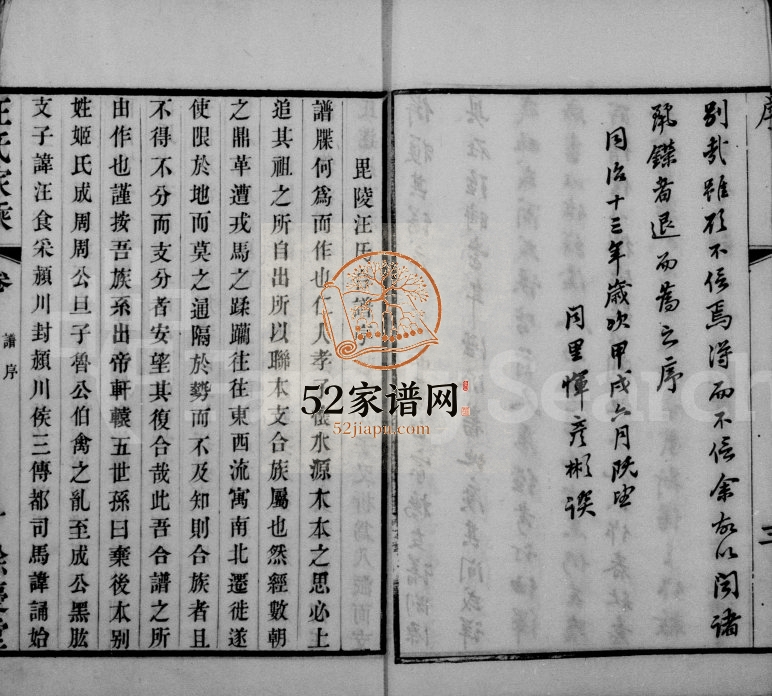 序
別哉雖欲不信焉得而不信余故以聞諸
秉鐸者退而為之序
同治十三年歲次甲戌六月既望
同里惲彦彬譔
三
毘陵汪氏合譜序
譜牒何為而作也仁人孝子從水源木本之思必上
追其祖之所自出所以聯本支合族屬也然經數朝
之鼎革遭戎馬之蹂躪往往東西流寓南北遷徙遂
使限於地而莫之通隔於勢而不及知則合族者且
不得不分而支分者安望其復合哉此吾合譜之所
由作也謹按吾族系出帝軒轅五世孫曰棄後本別
姓姬氏成周周公旦子魯公伯禽之亂至成公黑肱
支子諱汪食采潁川封潁川侯三傳都司馬諱誦始
汪氏家乘
卷
譜序
一
餘慶堂
52家谱网
52jiapu.com
Search